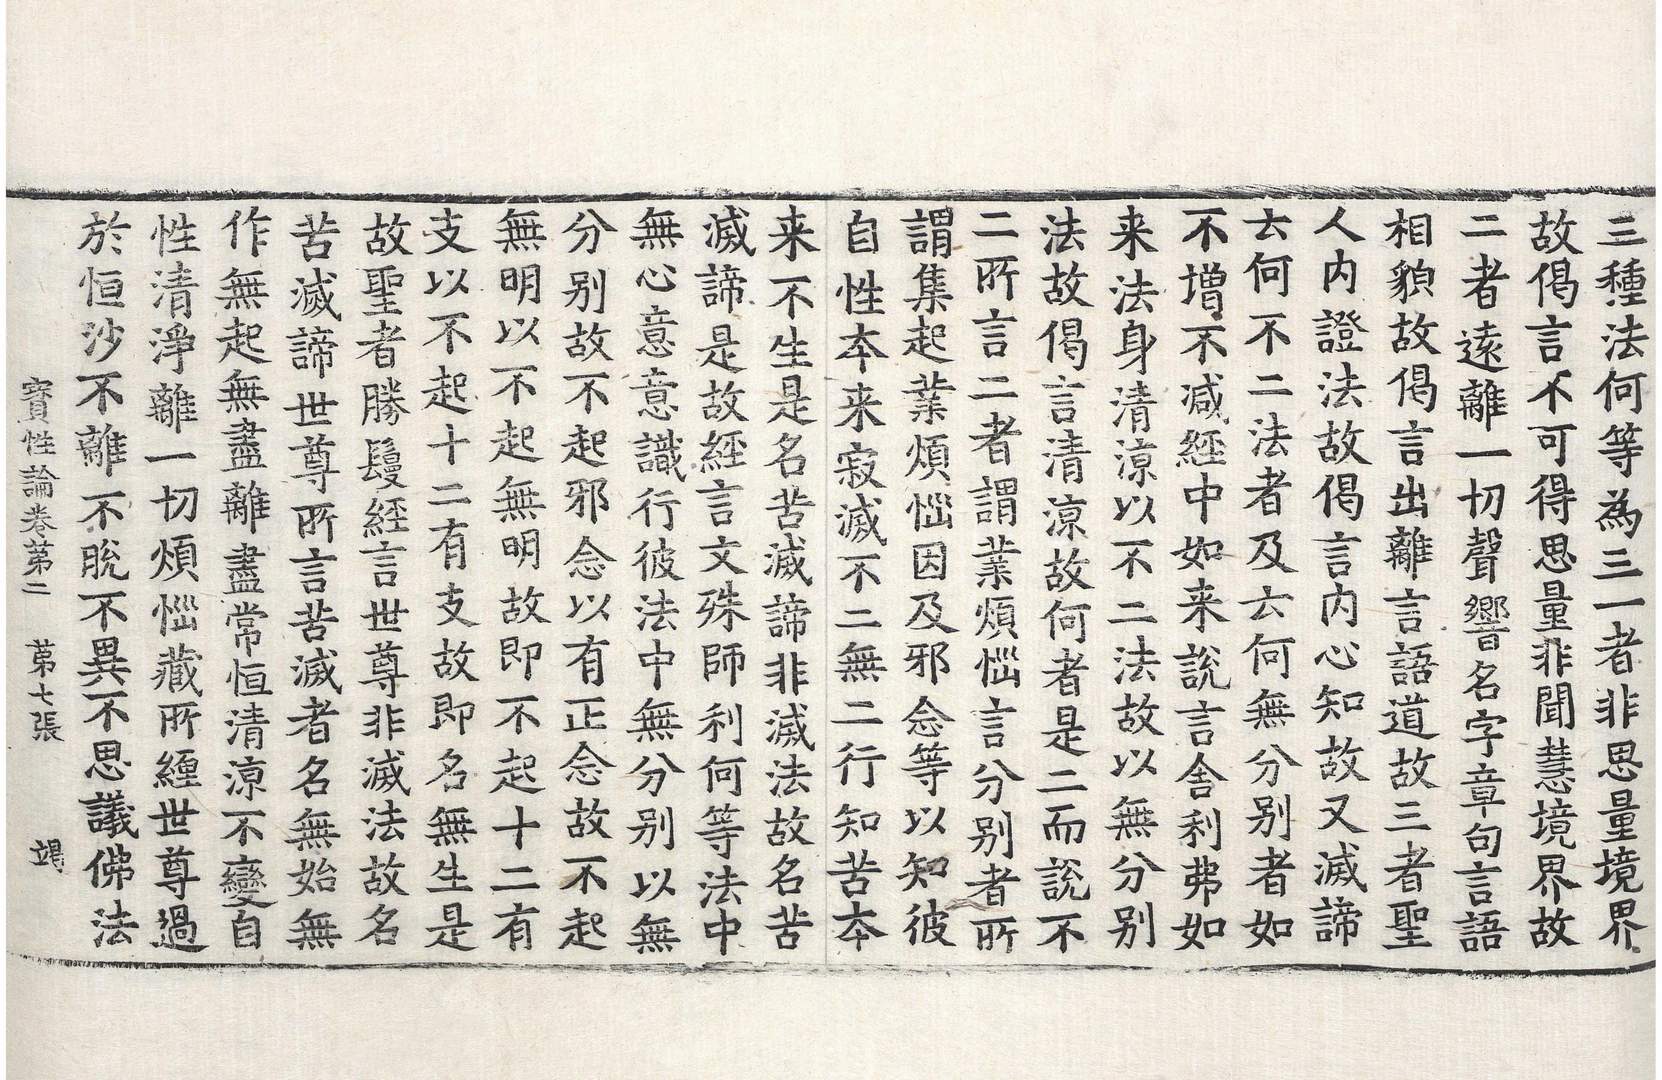 三種法何等為三一者非思量境界
故偈言不可得思量非聞慧境界故
二者遠離一切聲響名字章句言語
相貌故偈言出離言語道故三者聖
人內證法故偈言內心知故又滅諦
云何不二法者及云何無分別者如
不增不減經中如来說言舍利弗如
来法身清涼以不二法故以無分別
法故偈言清涼故何者是二而說不
二所言二者謂業煩惱言分別者所
謂集起業煩惱因及邪念等以知彼
自性本来寂滅不二無二行知苦本
来不生是名苦滅諦非滅法故名苦
滅諦是故經言文殊師利何等法中
無心意意識行彼法中無分別以無
分別故不起邪念以有正念故不起
無明以不起無明故即不起十二有
支以不起十二有支故即名無生是
故聖者勝鬘經言世尊非滅法故名
苦滅諦世尊所言苦滅者名無始無
作無起無盡離盡常恒清涼不變自
性清淨離一切煩惱藏所纏世尊過
於恒沙不離不脫不異不思議佛法
寶性論卷第二　第七張　竭